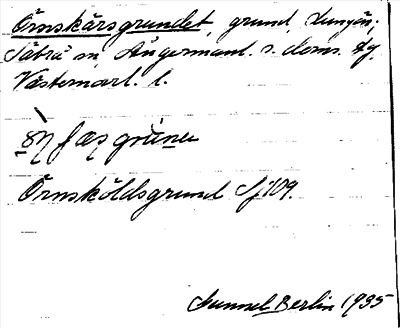 Örnskärsgrundet, grund, Lungön,
Säbrå sn, Ångermanl. s. doms. tg.
Västernorrl. l.
Örnsköldsgrund Sj. 109.
Gunnel Berlin 1935